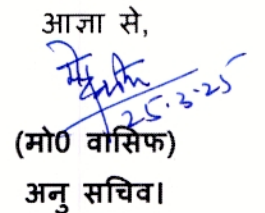 आज्ञा से,
25.3.25
(मो0 वासिफ)
अनु सचिव।